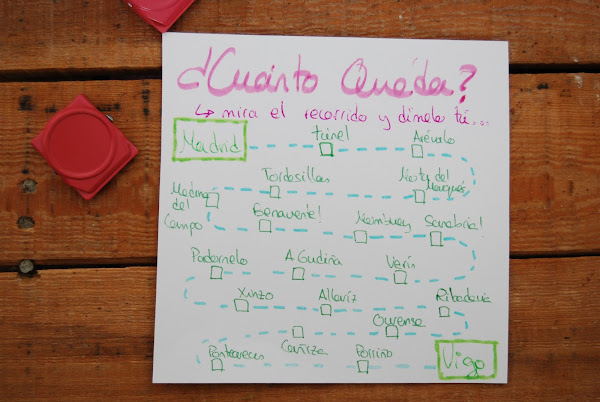 ¿Cuánto Queda?
↳ mira el recorrido y dímelo tú...
Madrid
túnel
Arévalo
Tordesillas
Medina
del
Campo
Benavente!
Sanabria!
Padornelo
A Gudiña
Verín
Xinzo
Allariz
Ribadavia
Ourense
Cañiza
Ponteareas
Porriño
Vigo